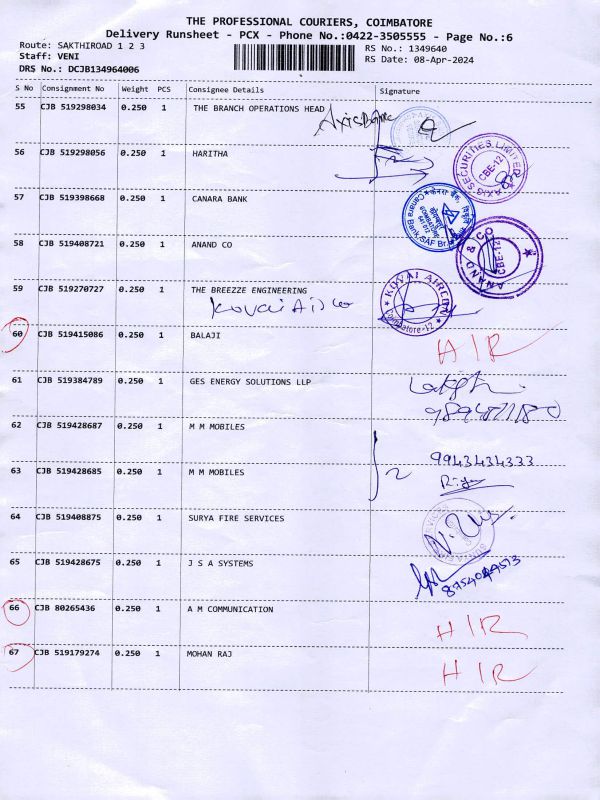 THE PROFESSIONAL COURIERS, COIMBATORE
Delivery Runsheet - PCX - Phone No.:0422-3505555 - Page No.:6
Route: SAKTHIROAD 1 2 3 RS No.: 1349640
Staff: VENI RS Date: 08-Apr-2024
DRS No.: DCJB134964006
S No Consignment No Weight PCS Consignee Details Signature
55 CJB 519298034 0.250 1 THE BRANCH OPERATIONS HEAD
56 CJB 519298056 0.250 1 HARITHA
AXIS SECURITIES LIMITED CBE-12
57 CJB 519398668 0.250 1 CANARA BANK
Canara Bank-SAF Br.
58 CJB 519408721 0.250 1 ANAND CO
ANAND & CO CBE-12
59 CJB 519270727 0.250 1 THE BREEZZE ENGINEERING
Kovai Aircon
KOVAI AIRCON Coimbatore-12
60 CJB 519415086 0.250 1 BALAJI H I R
61 CJB 519384789 0.250 1 GES ENERGY SOLUTIONS LLP
62 CJB 519428687 0.250 1 M M MOBILES
9943434333
63 CJB 519428685 0.250 1 M M MOBILES
64 CJB 519408875 0.250 1 SURYA FIRE SERVICES
65 CJB 519428675 0.250 1 J S A SYSTEMS
66 CJB 80265436 0.250 1 A M COMMUNICATION H I R
67 CJB 519179274 0.250 1 MOHAN RAJ H I R